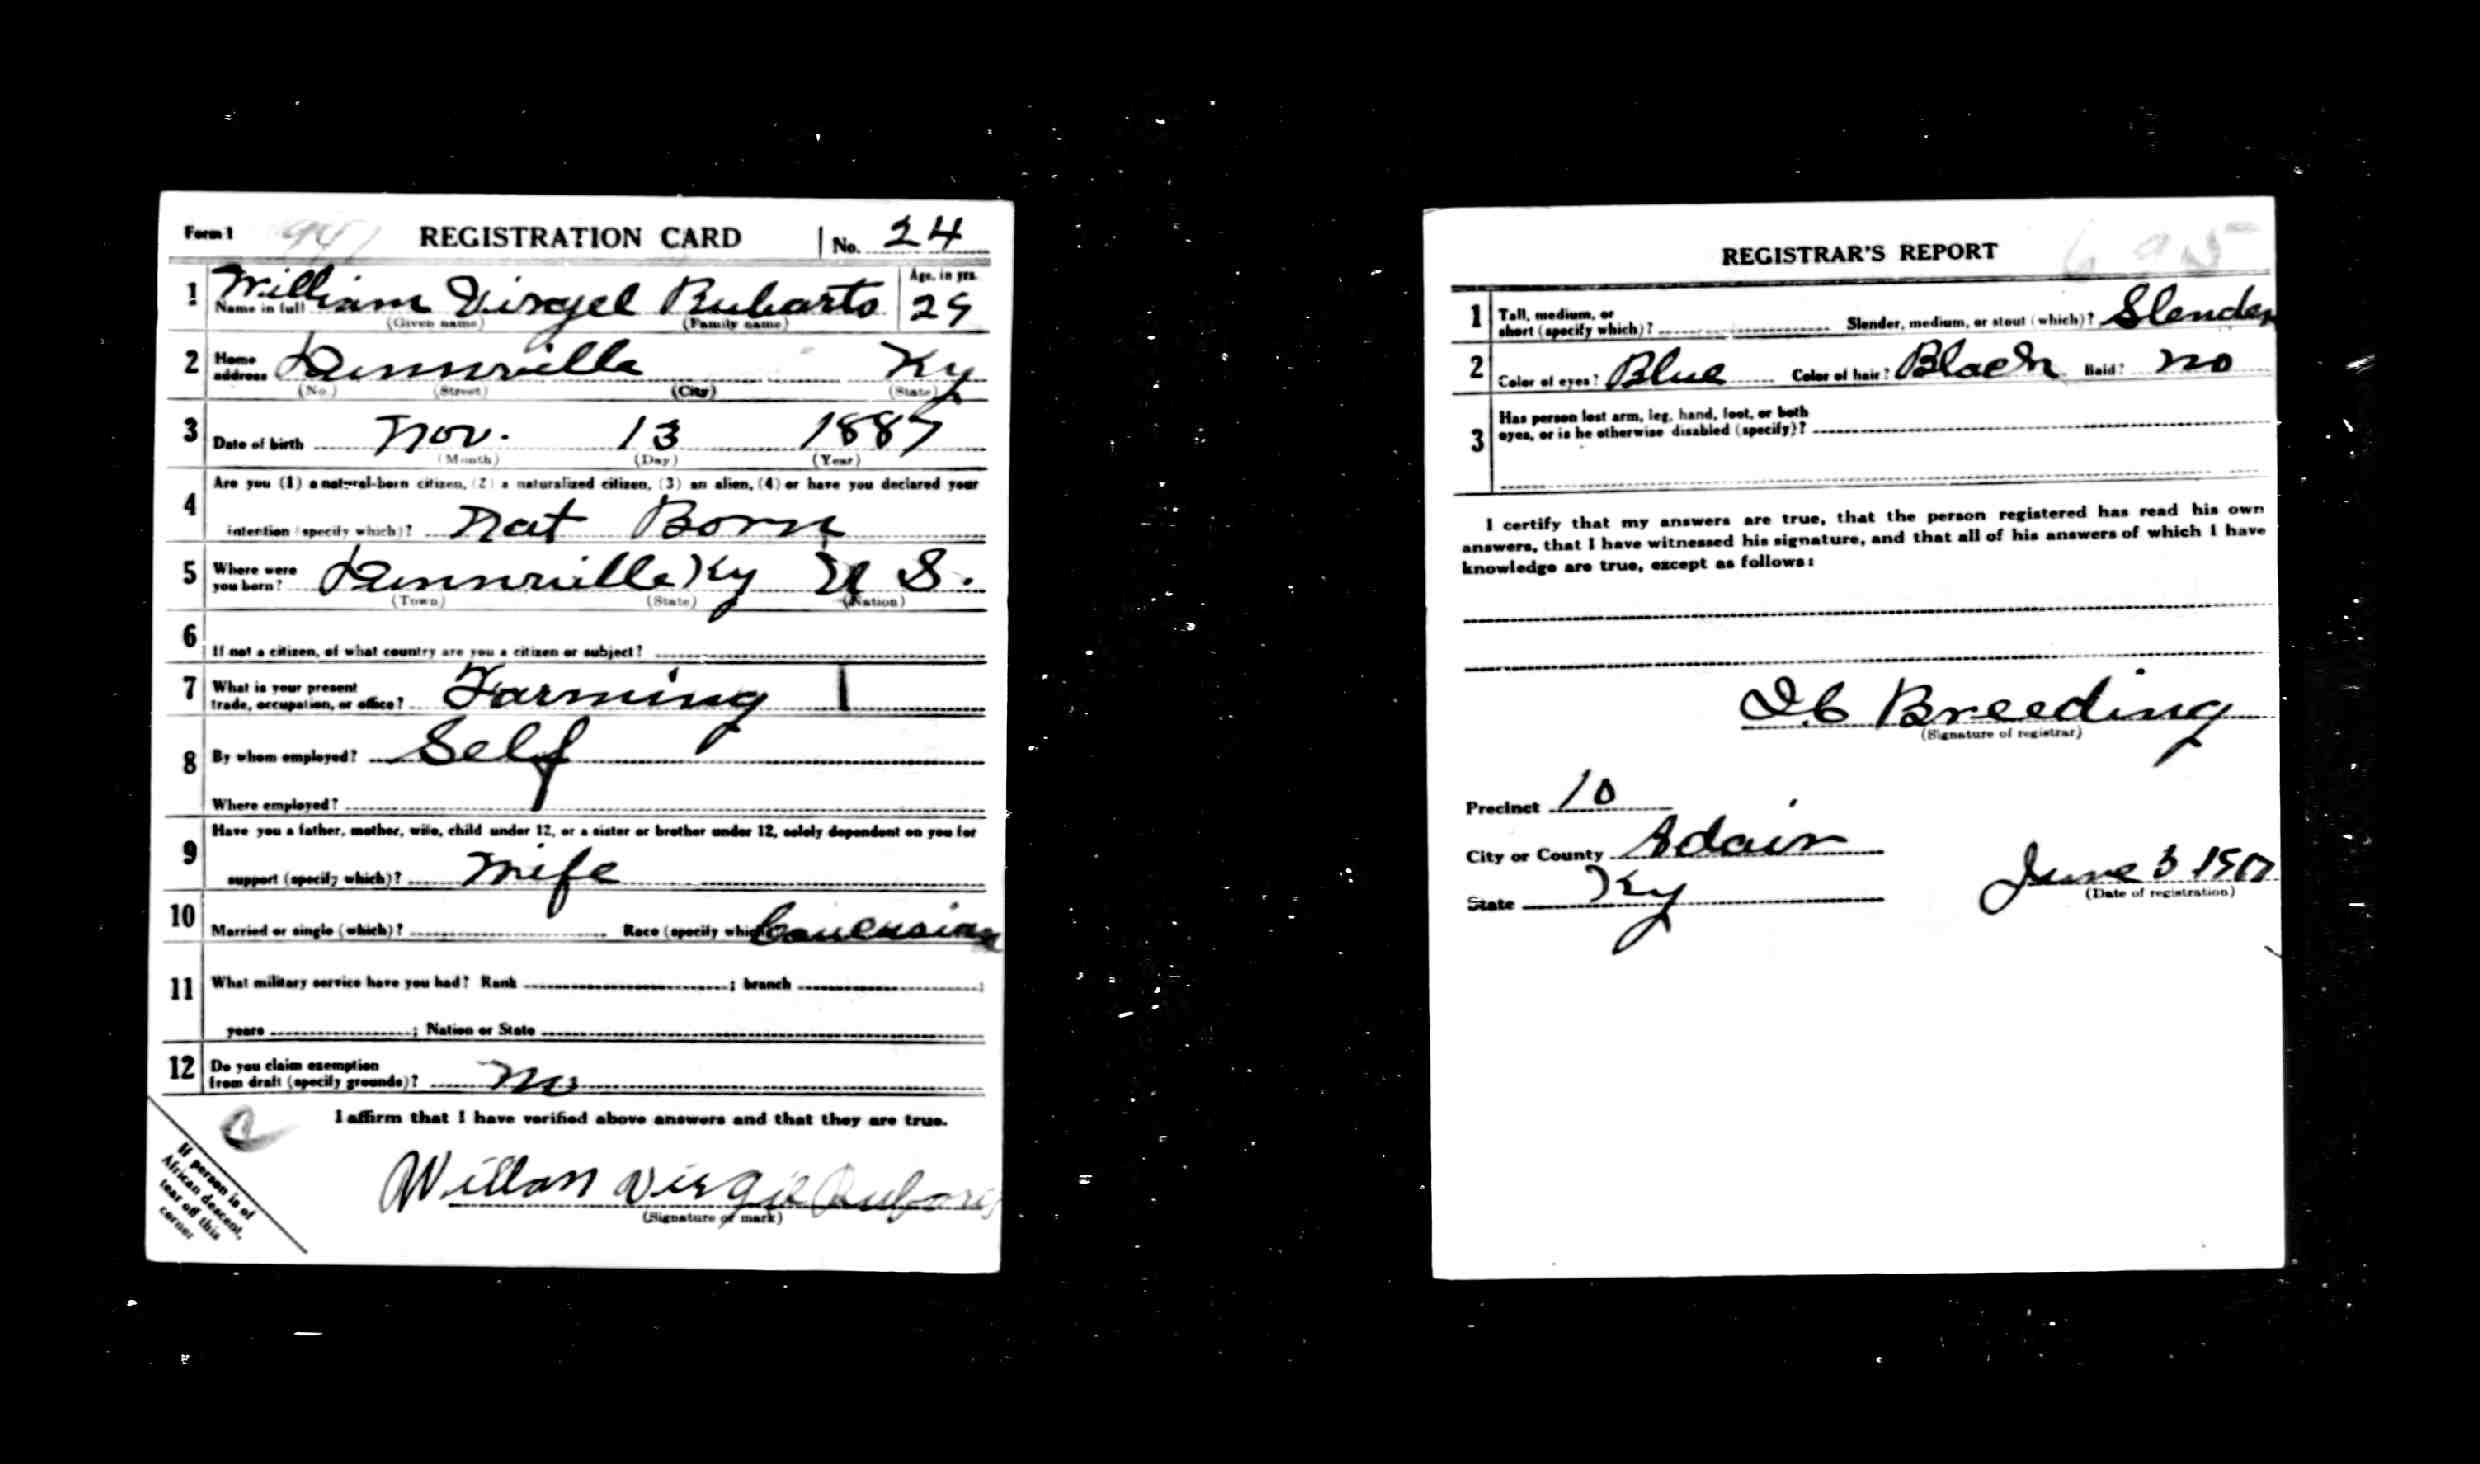 Form 1 REGISTRATION CARD No. 24
1 Name in full William Virgel Rubarts Age, in yrs. 29
(Given name) (Family name)
2 Home address Dunnville Ky
(No.) (Street) (City) (State)
3 Date of birth Nov. 13 1887
(Month) (Day) (Year)
4 Are you (1) a natural-born citizen, (2) a naturalized citizen, (3) an alien, (4) or have you declared your
intention (specify which)? Nat Born
5 Where were you born? Dunnville Ky U S.
(Town) (State) (Nation)
6 If not a citizen, of what country are you a citizen or subject?
7 What is your present trade, occupation, or office? Farming
8 By whom employed? Self
Where employed?
9 Have you a father, mother, wife, child under 12, or a sister or brother under 12, solely dependent on you for
support (specify which)? Wife
10 Married or single (which)? Race (specify which)? Caucasian
11 What military service have you had? Rank ; branch ;
years ; Nation or State
12 Do you claim exemption
from draft (specify grounds)? No
I affirm that I have verified above answers and that they are true.
Willan Virgil
(Signature or mark)
If person is of
African descent,
tear off this
corner
REGISTRAR'S REPORT
1 Tall, medium, or
short (specify which)? Slender, medium, or stout (which)? Slender
2 Color of eyes? Blue Color of hair? Black Bald? No
3 Has person lost arm, leg, hand, foot, or both
eyes, or is he otherwise disabled (specify)?
I certify that my answers are true, that the person registered has read his own
answers, that I have witnessed his signature, and that all of his answers of which I have
knowledge are true, except as follows:
Breeding
(Signature of registrar)
Precinct 10
City or County Adair
State Ky
June 5 1917
(Date of registration)